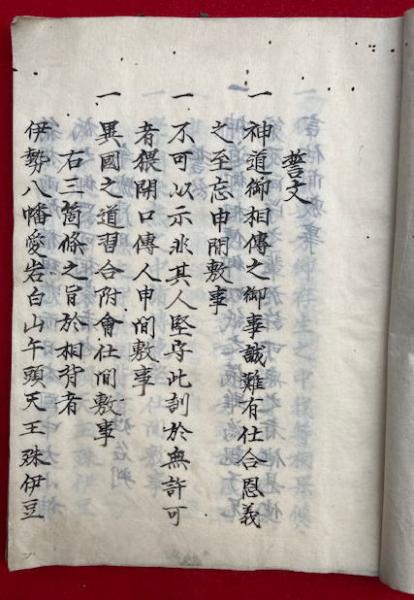 誓文
一 神道御相傳之御事誠難有仕合恩義
之至忘申間敷事
一 不可以示非其人堅守此訓於無許可
者猥開口傳人申間敷事
一 異國之道習合附會仕間敷事
右三箇條之旨於相背者
伊勢八幡愛岩白山午頭天王殊伊豆